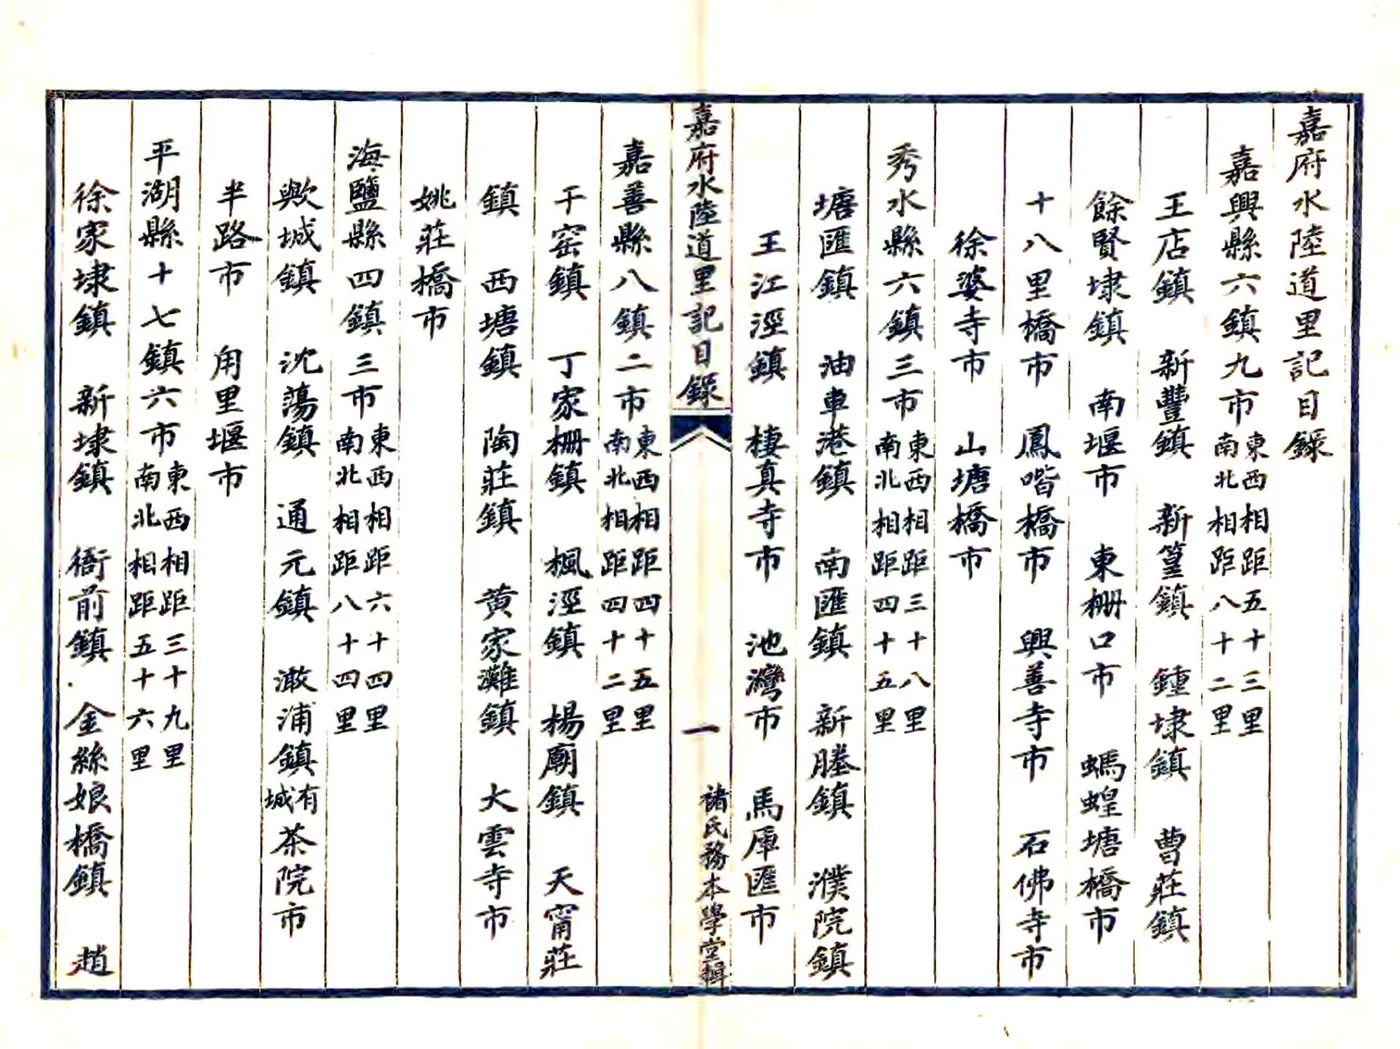 嘉府水陸道里記目錄
嘉興縣六鎮九市東西相距五十三里南北相距八十二里
王店鎮 新豐鎮 新篁鎮 鍾埭鎮 曹莊鎮
餘賢埭鎮 南堰市 東柵口市 螞蝗塘橋市
十八里橋市 鳳喈橋市 興善寺市 石佛寺市
徐婆寺市 山塘橋市
秀水縣六鎮三市東西相距三十八里南北相距四十五里
塘匯鎮 油車港鎮 南匯鎮 新塍鎮 濮院鎮
王江涇鎮 棲真寺市 池灣市 馬厙匯市
嘉府水陸道里記目錄 一 褚氏務本學堂輯
嘉善縣八鎮二市東西相距四十五里南北相距四十二里
干窑鎮 丁家柵鎮 楓涇鎮 楊廟鎮 天甯莊
鎮 西塘鎮 陶莊鎮 黄家灘鎮 大雲寺市
姚莊橋市
海鹽縣四鎮三市東西相距六十四里南北相距八十四里
歟城鎮 沈蕩鎮 通元鎮 澉浦鎮有城 茶院市
半路市 甪里堰市
平湖縣十七鎮六市東西相距三十九里南北相距五十六里
徐家埭鎮 新埭鎮 衙前鎮 金絲娘橋鎮 趙